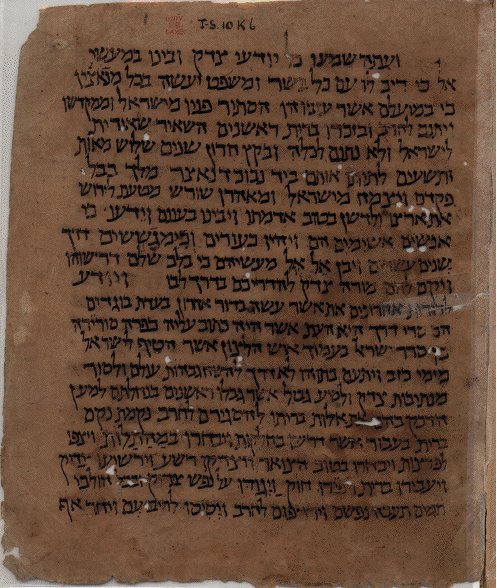 UNIV. LIBR. CAMB.
T-S. 10 K 6
ועתה שמעו כל יודעי צדק ובינו במעשי
אל כי ריב לו עם כל בשר ומשפט יעשה בכל מנאציו
כי במועלם אשר עזבוהו הסתיר פניו מישראל וממקדשו
ויתנם לחרב ובזכרו ברית ראשנים השאיר שאירית
לישראל ולא נתנם לכלה ובקץ חרון שנים שלוש מאות
ותשעים לתיתו אותם ביד נבוכדנאצר מלך בבל
פקדם ויצמח מישראל ומאהרן שורש מטעת לירוש
את ארצו ולדשן בטוב אדמתו ויבינו בעונם וידעו כי
אנשים אשימים הם ויהיו כעורים וכימגששים דרך
שנים עשרים ויבן אל אל מעשיהם כי בלב שלם דרשוהו
ויקם להם מורה צדק להדריכם בדרך לבו ויודע
לדורות אחרונים את אשר עשה בדור אחרון בעדת בוגדים
הם סרי דרך היא העת אשר היה כתוב עליה כפרה סורירה
כן סרר ישראל בעמוד איש הלצון אשר הטיף לישראל
מימי כזב ויתעם בתוהו לא דרך להשח גבהות עולם ולסור
מנתיבות צדק ולסיע גבול אשר גבלו ראשנים בנחלתם למען
הדבק בהם את אלות בריתו להסגירם לחרב נקמת נקם
ברית בעבור אשר דרשו בחלקות ויבחרו במהתלות ויצפו
לפרצות ויבחרו בטוב הצואר ויצדיקו רשע וירשיעו צדיק
ויעבירו ברית ויפירו חוק ויגודו על נפש צדיק ובכל הולכי
תמים תעבה נפשם וירדפום לחרב ויסיסו לריב עם ויחר אף